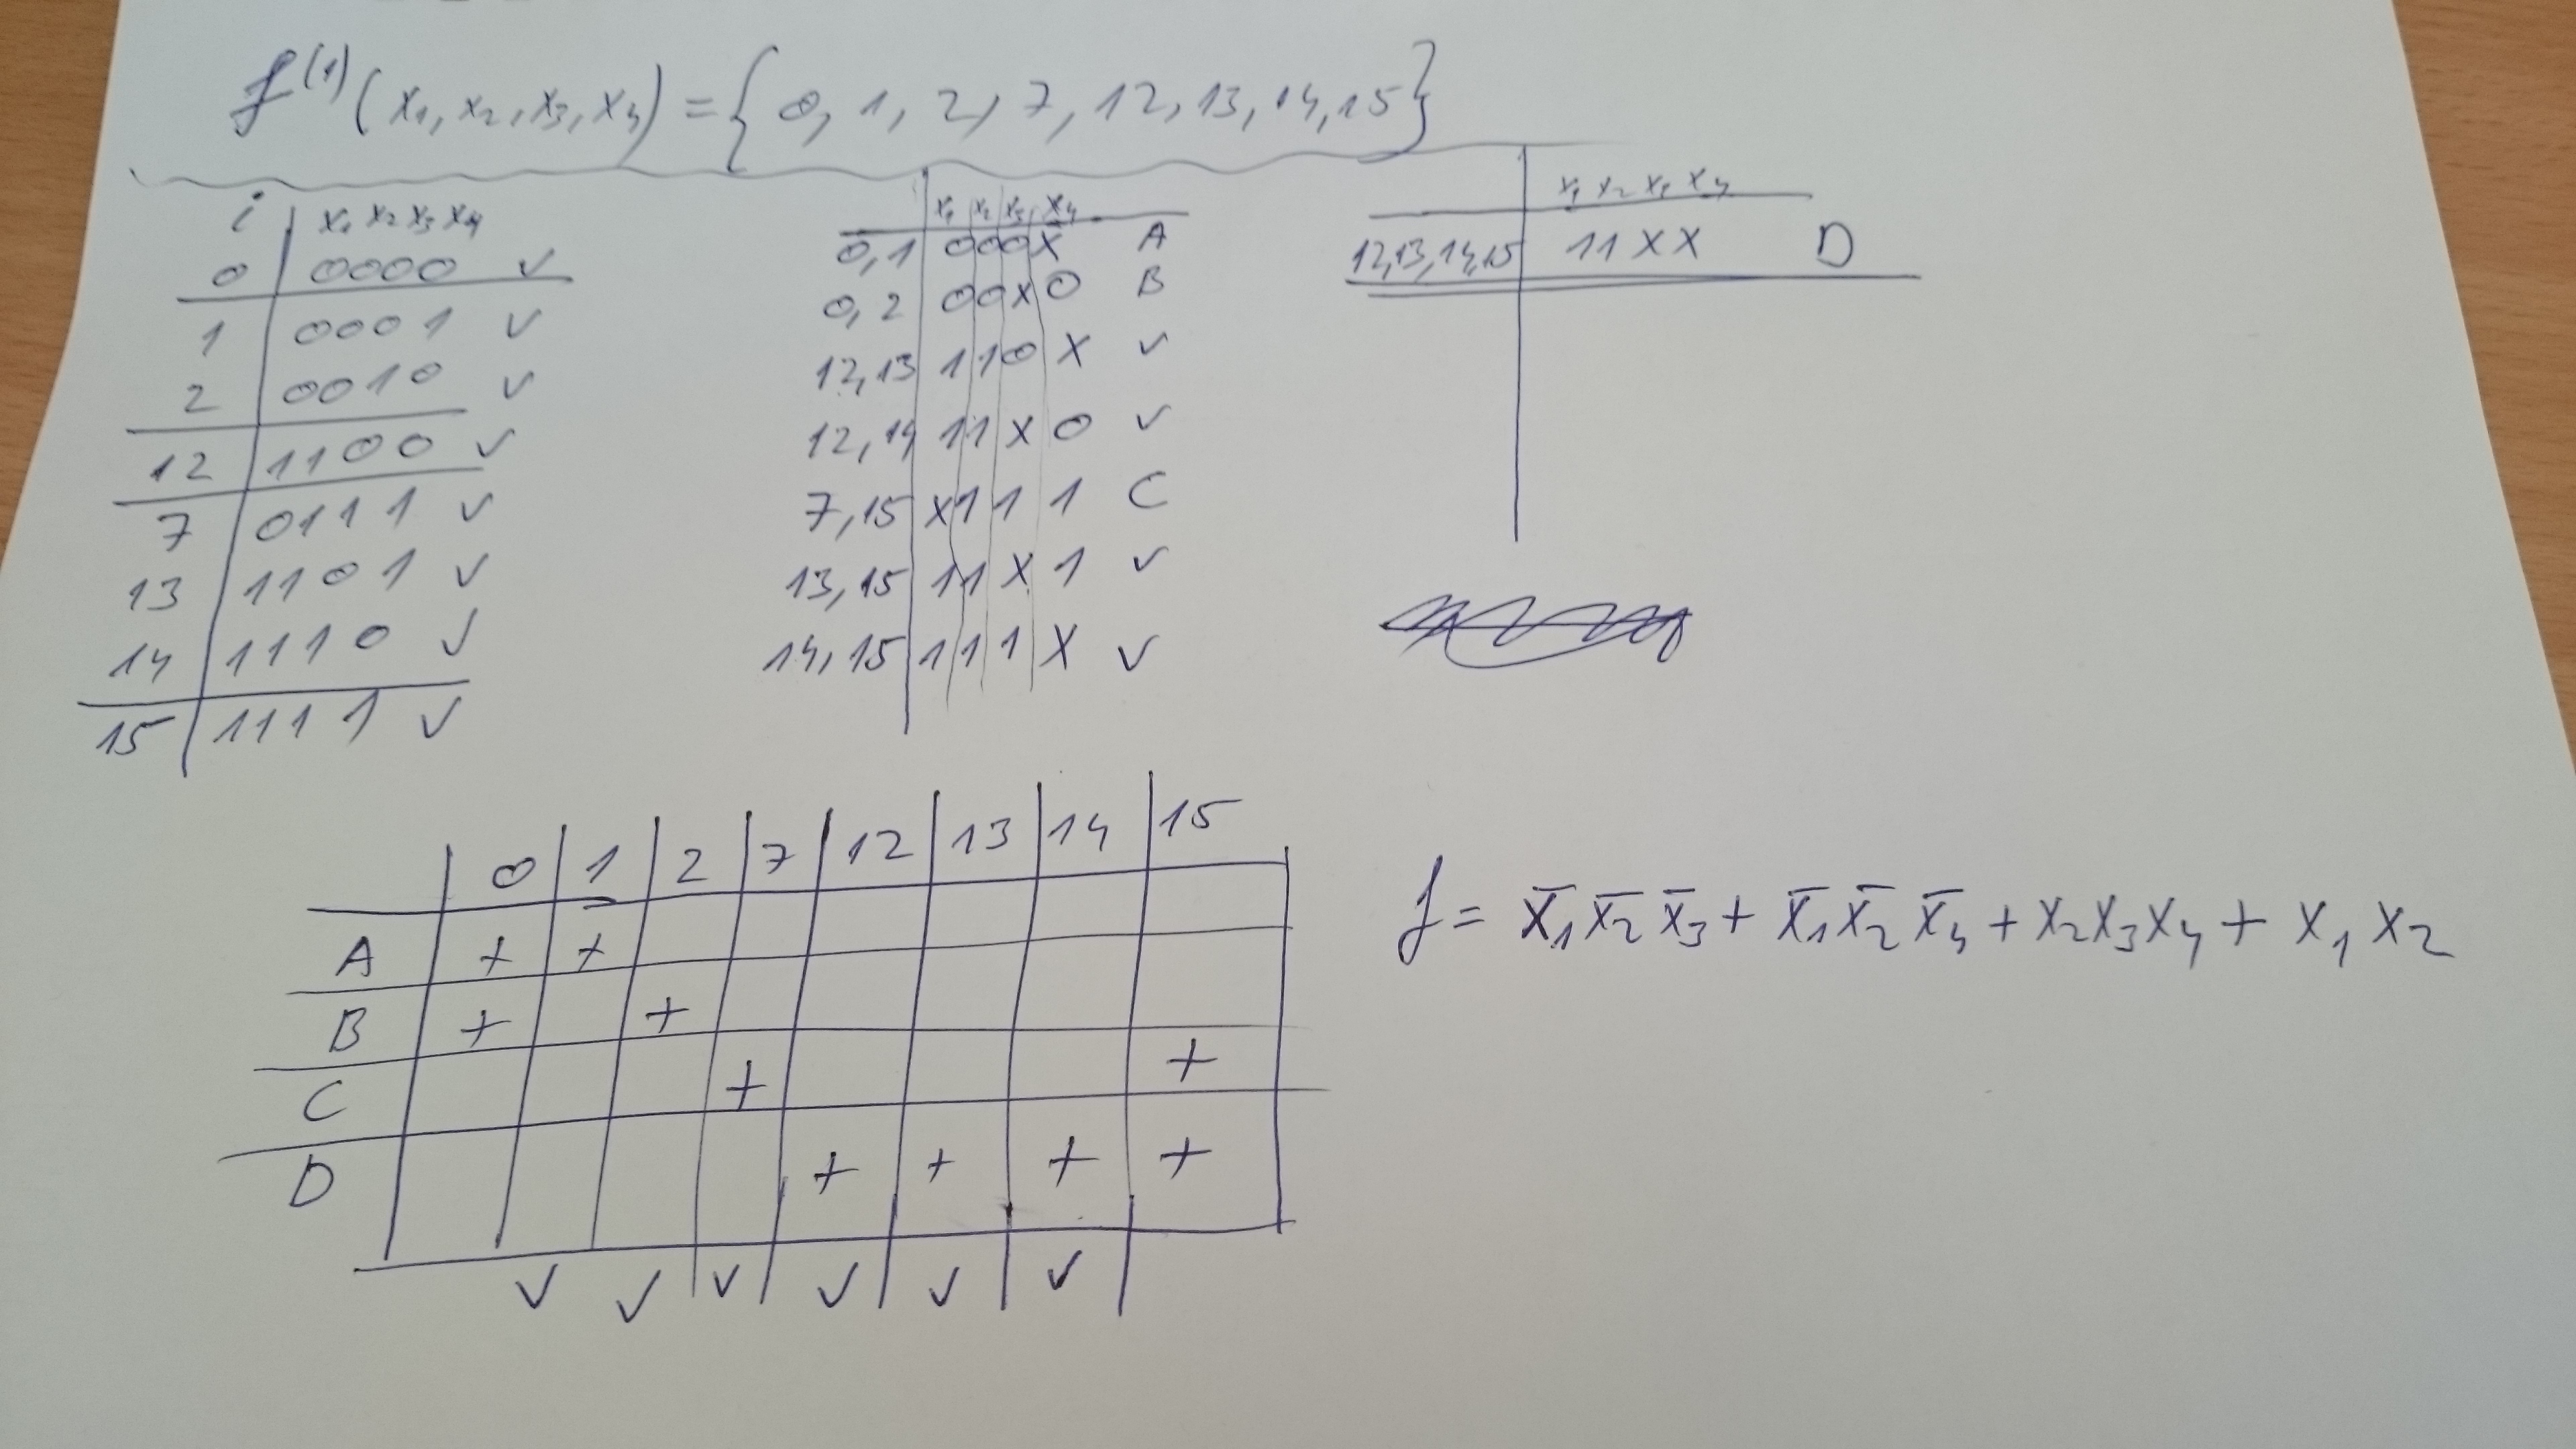 f⁽¹⁾(x₁, x₂, x₃, x₄) = {0, 1, 2, 7, 12, 13, 14, 15}
i | x₁ x₂ x₃ x₄
0 | 0000 ✓
1 | 0001 ✓
2 | 0010 ✓
12 | 1100 ✓
7 | 0111 ✓
13 | 1101 ✓
14 | 1110 ✓
15 | 1111 ✓
x₁ | x₂ | x₃ | x₄
0,1 | 000X A
0,2 | 00X0 B
12,13 | 110X ✓
12,14 | 11X0 ✓
7,15 | X111 C
13,15 | 11X1 ✓
14,15 | 111X ✓
x₁ x₂ x₃ x₄
12,13,14,15 | 11XX D
0 | 1 | 2 | 7 | 12 | 13 | 14 | 15
A | + | + | | | | | |
B | + | | + | | | | |
C | | | | + | | | | +
D | | | | | + | + | + | +
✓ ✓ ✓ ✓ ✓ ✓
f = x̅₁x̅₂x̅₃ + x̅₁x̅₂x̅₄ + x₂x₃x₄ + x₁x₂